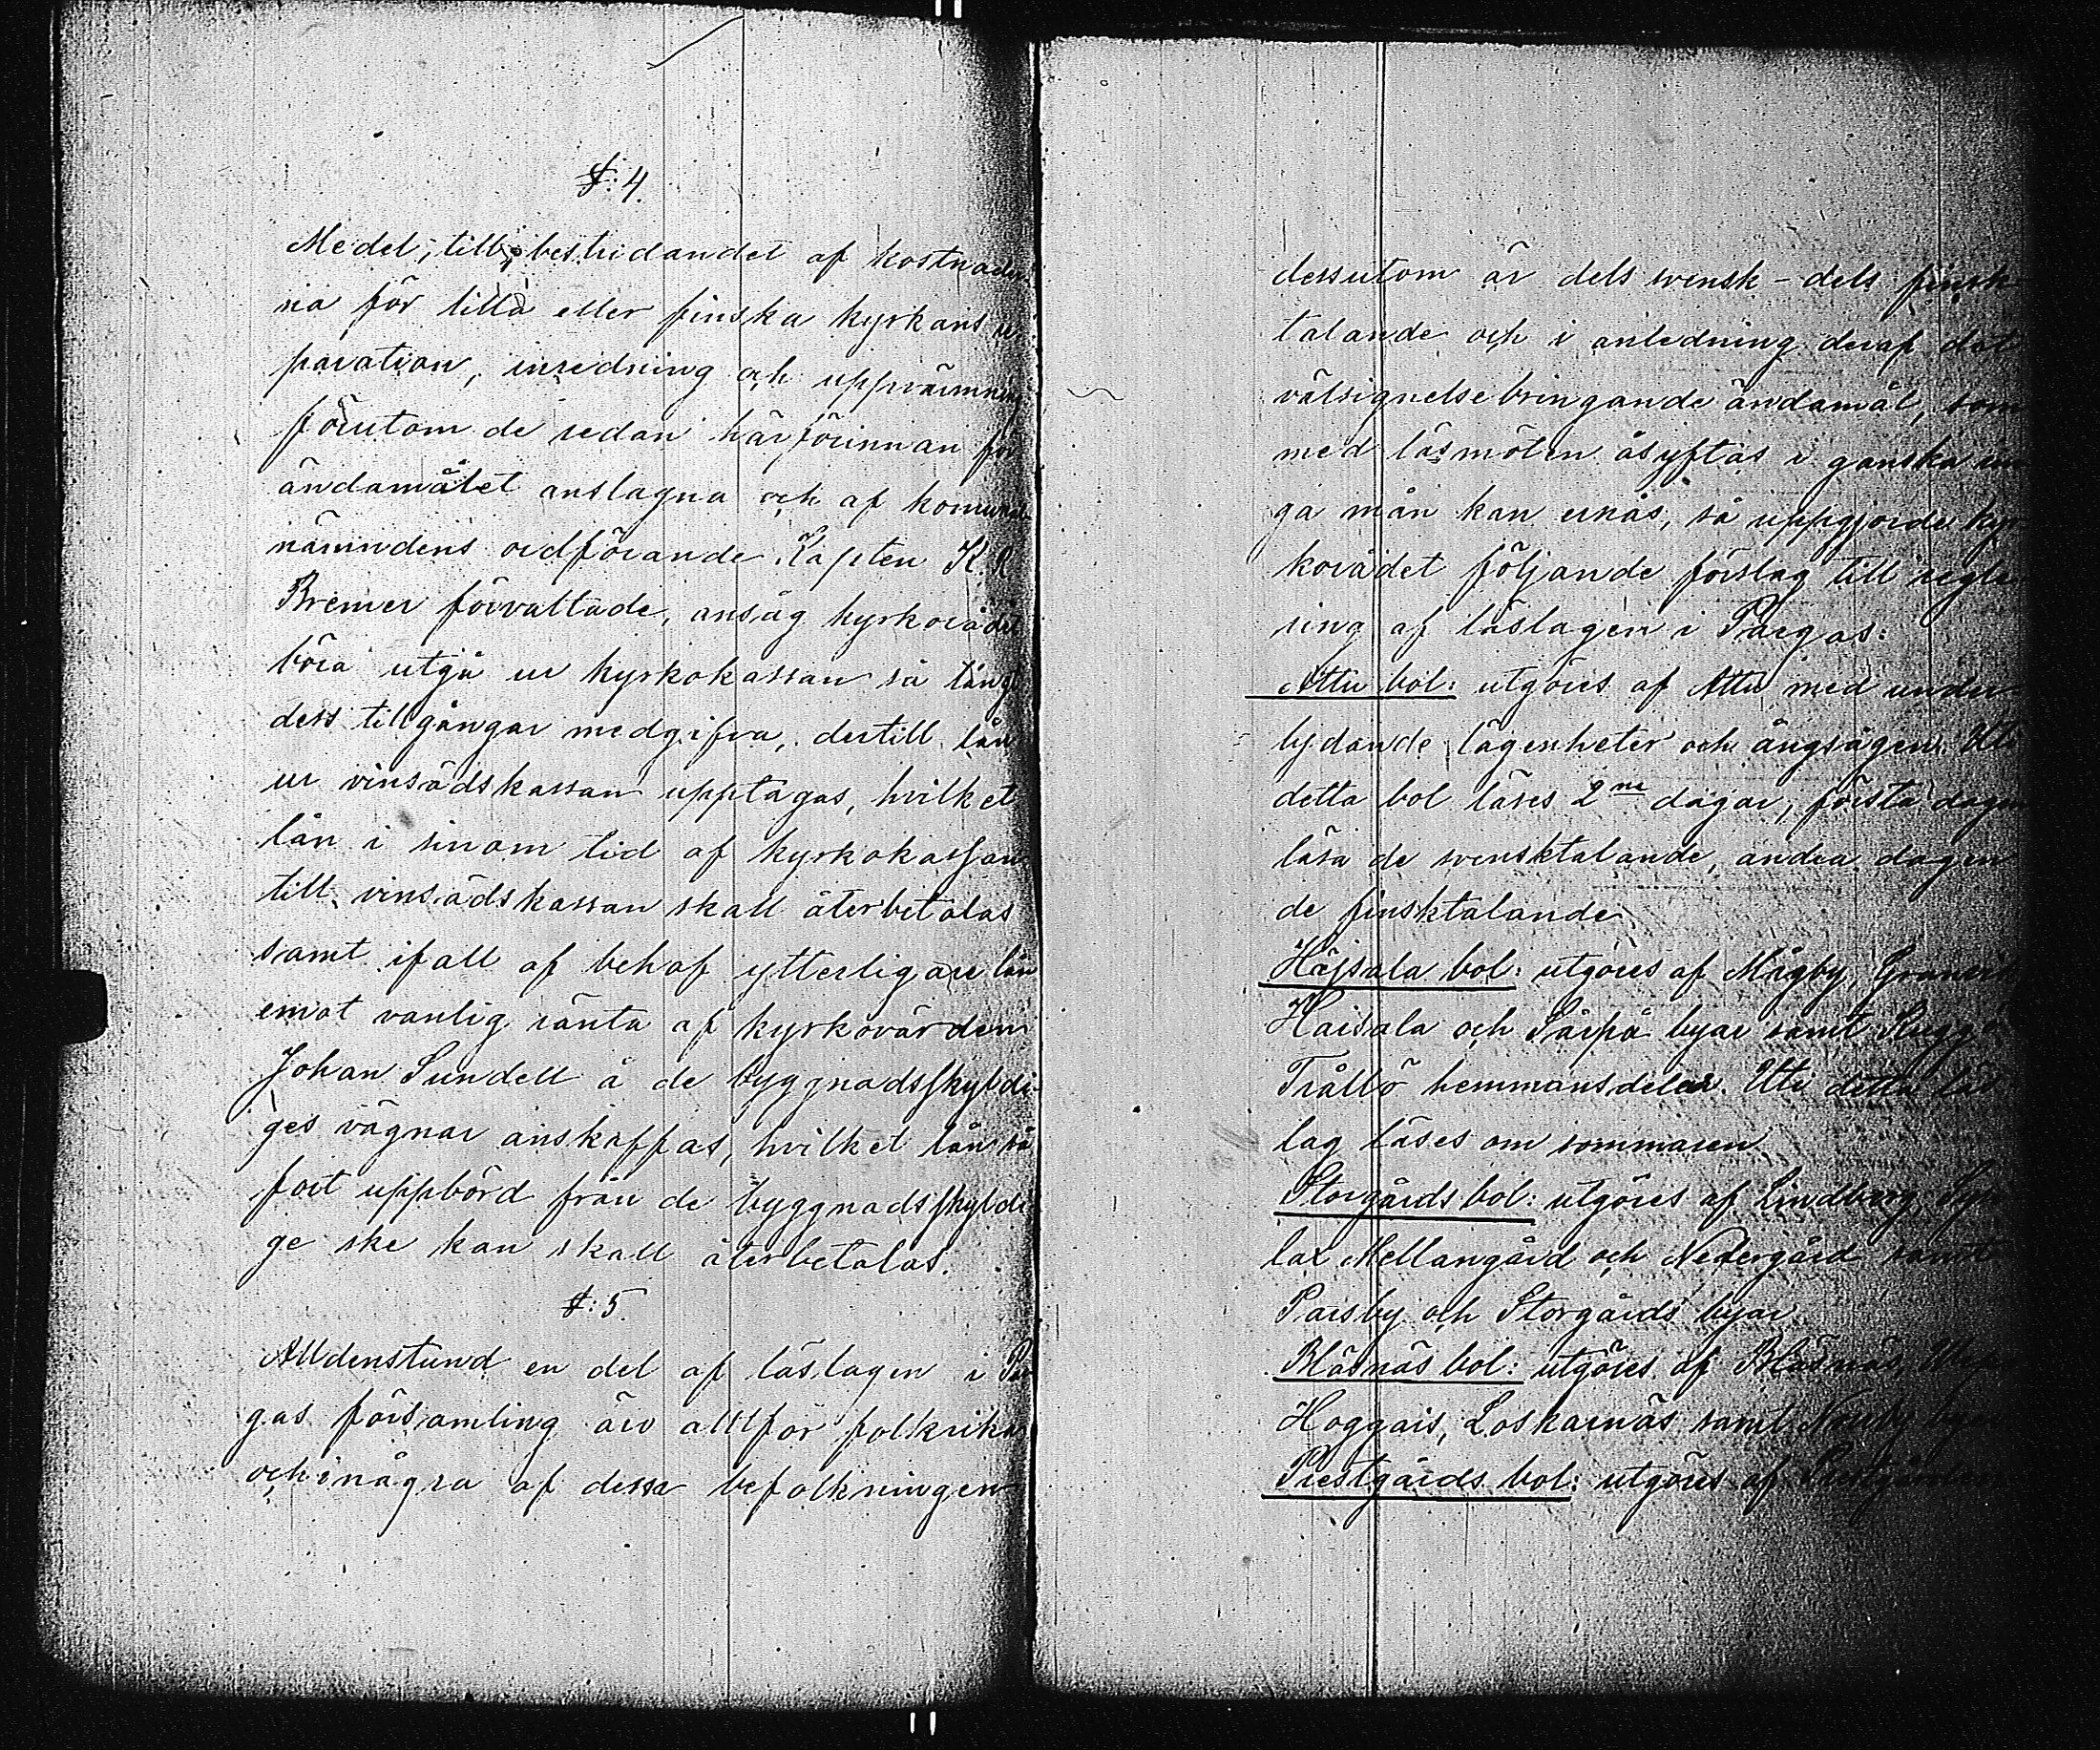 §: 4.
Medel, till bestridandet af kostnader
na för lilla eller finska kyrkans re
paration, inredning och uppvärmning
förutom de redan härförinnan för
ändamålet anslagna och af komunal
nämndens ordförande Kapten K. R.
Bremer förvaltade, ansåg kyrkorådet
böra utgå ur kyrkokassan så långt
dess tillgångar medgifva, dertill lån
ur vinsädskassan upptagas, hvilket
lån i sinom tid af kyrkokassan
till vinsädskassan skall återbetalas
samt ifall af behof ytterligare lån
emot vanlig ränta af kyrkovärden
Johan Sundell å de byggnadsskyldi-
ges vägnar anskaffas, hvilket lån så
fort uppbörd från de byggnadsskyldi
ge ske kan skall återbetalas.
§: 5.
Alldenstund en del af läslagen i Par
gas församling äro alltför folkrika
och i några af dessa befolkningen
dessutom är dels svensk- dels finsk
talande och i anledning deraf det
välsignelsebringande ändamål, som
med läsmöten åsyftas i ganska rin
ga mån kan ernås, så uppgjorde kyr
korådet följande förslag till regle
ring af läslagen i Pargas:
Attu bol: utgöres af Attu med under
lydande lägenheter och ängsägen. Uti
detta bol läses 2ne dagar, första dagen
läsa de svensktalande, andra dagen
de finsktalande
Häjsala bol: utgöres af Mågby,
Haisala och Särpå byar samt
Trållö hemmansdelar. Uti detta läs
lag läses om sommaren
Storgårds bol: utgöres af Lindberg,
lax Mellangård och Nedergård samt
Parsby och Storgårds byar
Bläsnäs bol: utgöres af Bläsnäs,
Hoggais, Loskarnäs samt Norrby
Prestgårds bol: utgöres af